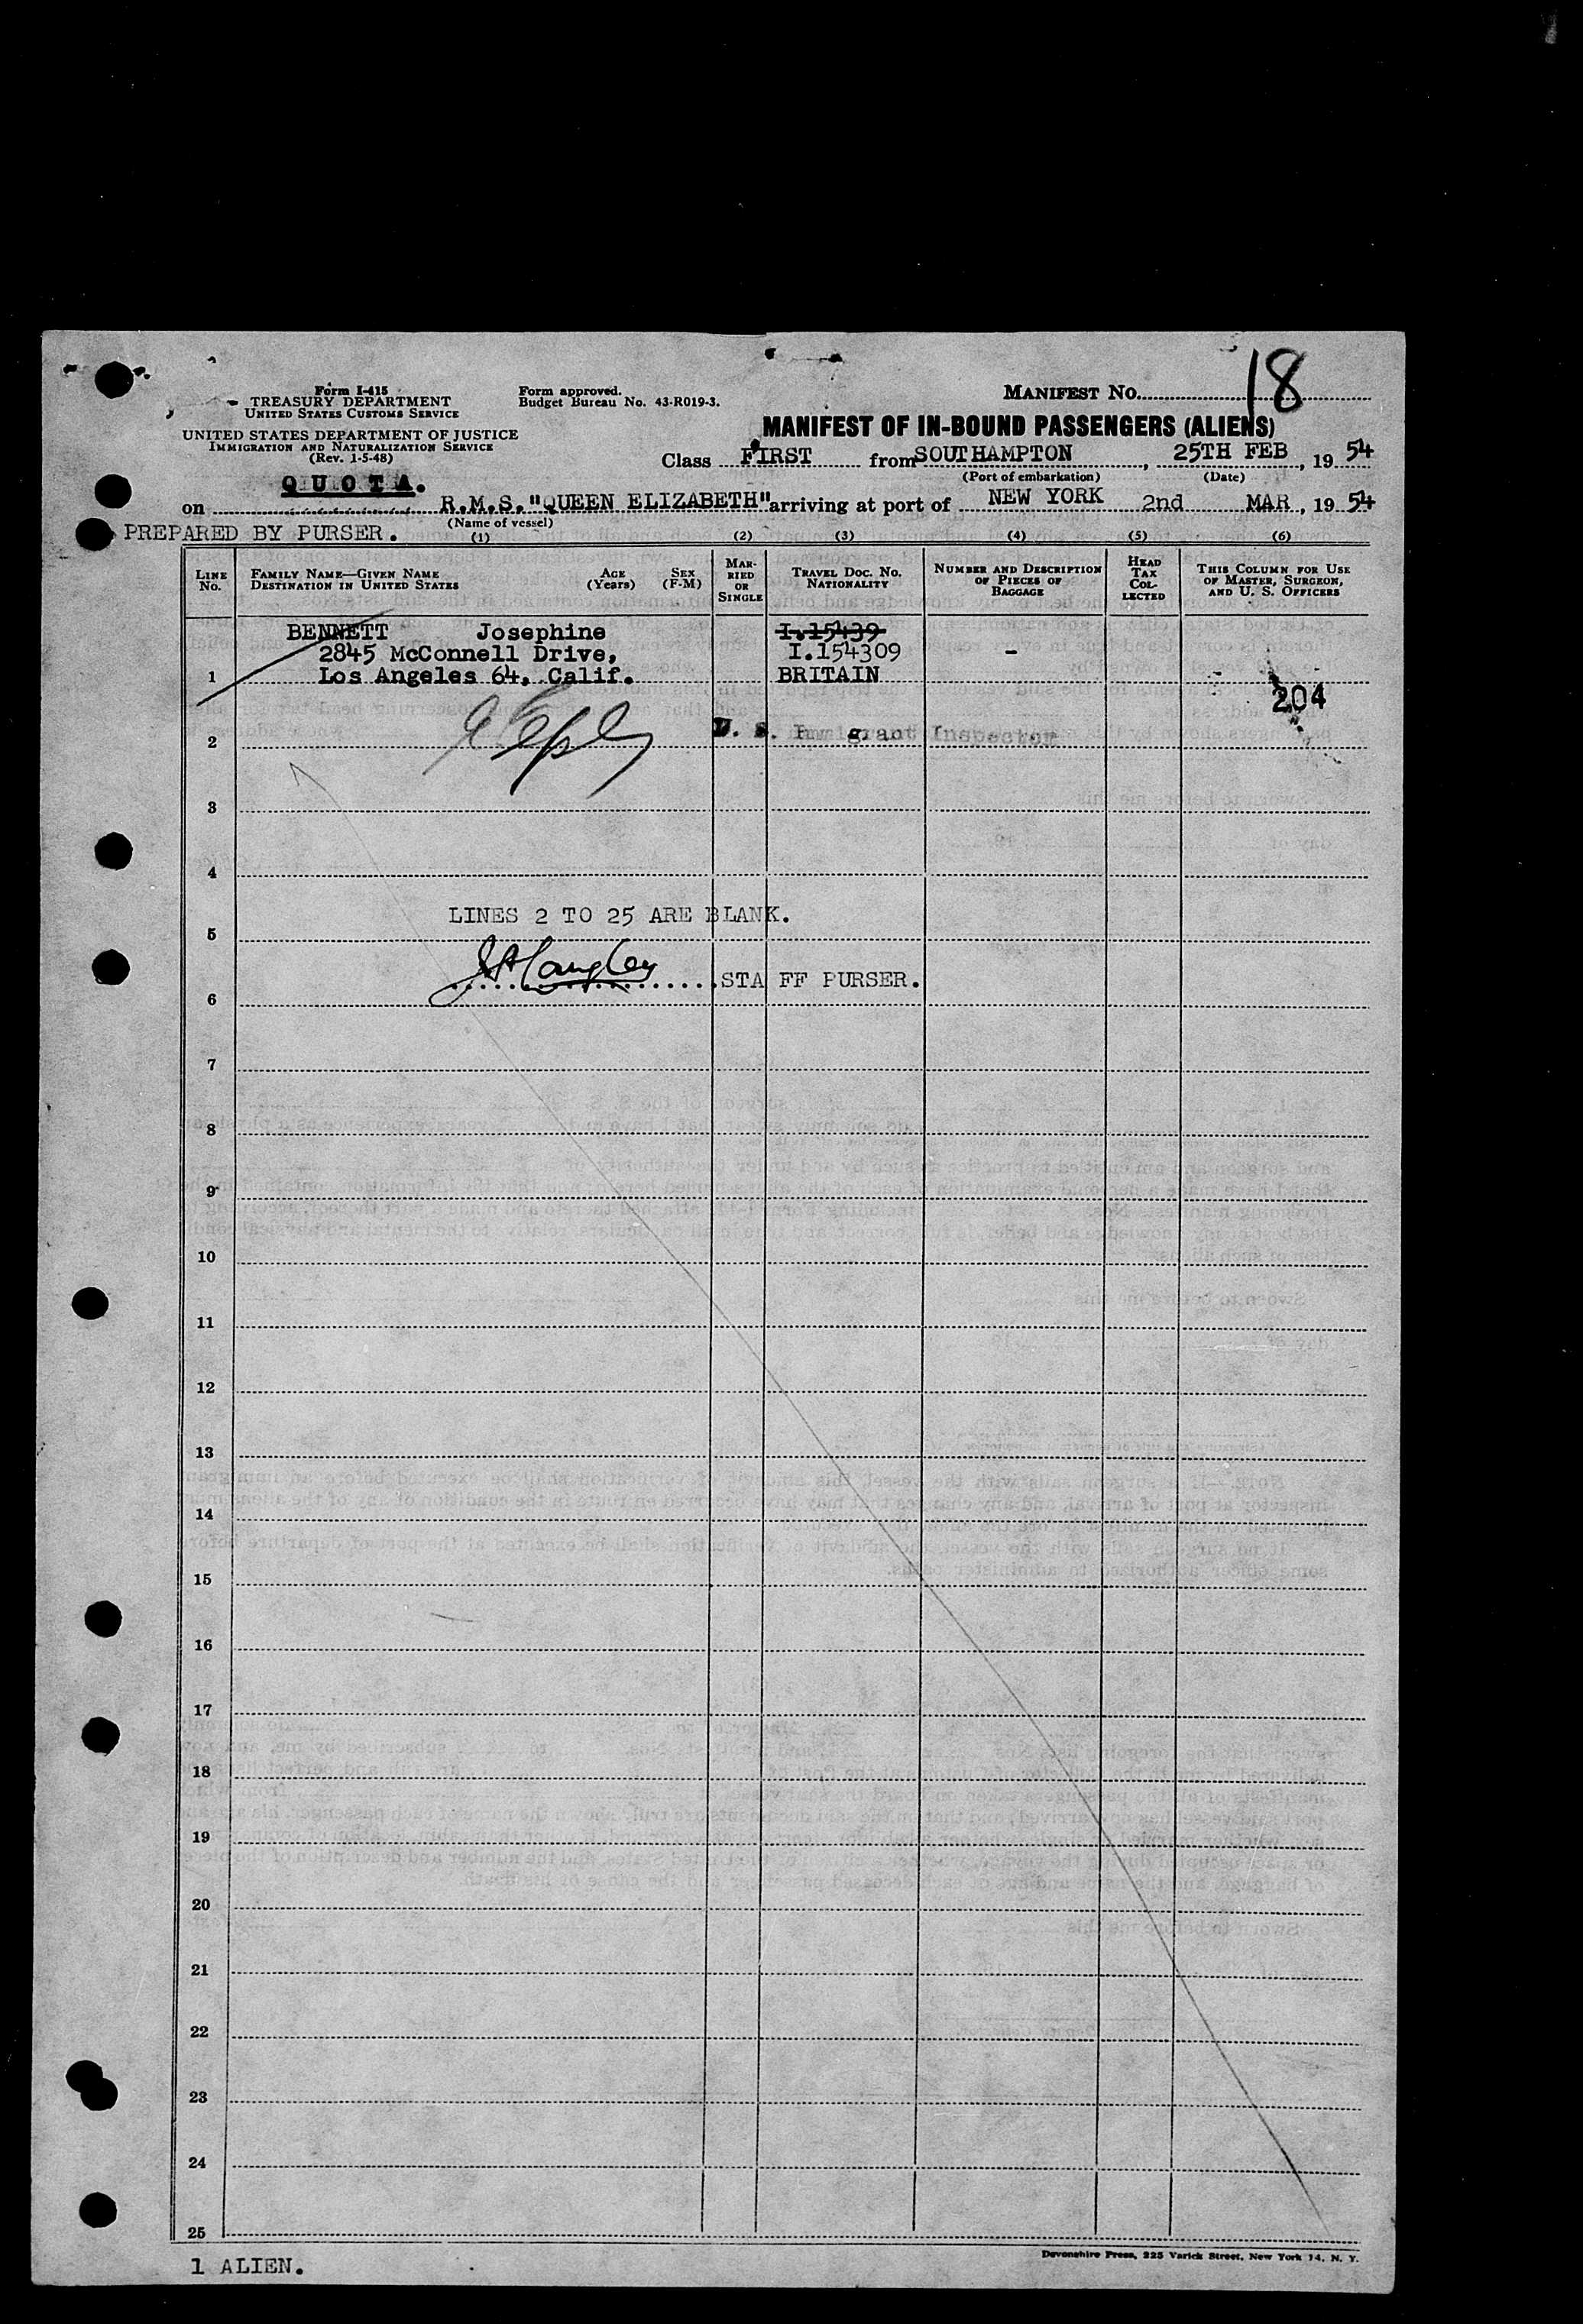 18
Form I-415
TREASURY DEPARTMENT
UNITED STATES CUSTOMS SERVICE
Form approved.
Budget Bureau No. 43-R019-3.
MANIFEST No.
UNITED STATES DEPARTMENT OF JUSTICE
IMMIGRATION AND NATURALIZATION SERVICE
(Rev. 1-5-48)
MANIFEST OF IN-BOUND PASSENGERS (ALIENS)
Class FIRST from SOUTHAMPTON, 25TH FEB, 19 54
(Port of embarkation) (Date)
QUOTA.
on R.M.S. "QUEEN ELIZABETH" arriving at port of NEW YORK 2nd MAR, 19 54
(Name of vessel)
PREPARED BY PURSER.
(1) (2) (3) (4) (5) (6)
LINE No. FAMILY NAME—GIVEN NAME DESTINATION IN UNITED STATES AGE (Years) SEX (F-M) MARRIED OR SINGLE TRAVEL DOC. NO. NATIONALITY NUMBER AND DESCRIPTION OF PIECES OF BAGGAGE HEAD TAX COLLECTED THIS COLUMN FOR USE OF MASTER, SURGEON, AND U. S. OFFICERS
BENNETT Josephine I.15439
2845 McConnell Drive, I.154309 -
1 Los Angeles 64, Calif. BRITAIN
204
2 U. S. Immigrant Inspector
3
4
LINES 2 TO 25 ARE BLANK.
5
STAFF PURSER.
6
7
8
9
10
11
12
13
14
15
16
17
18
19
20
21
22
23
24
25
1 ALIEN.
Devonshire Press, 225 Varick Street, New York 14, N. Y.